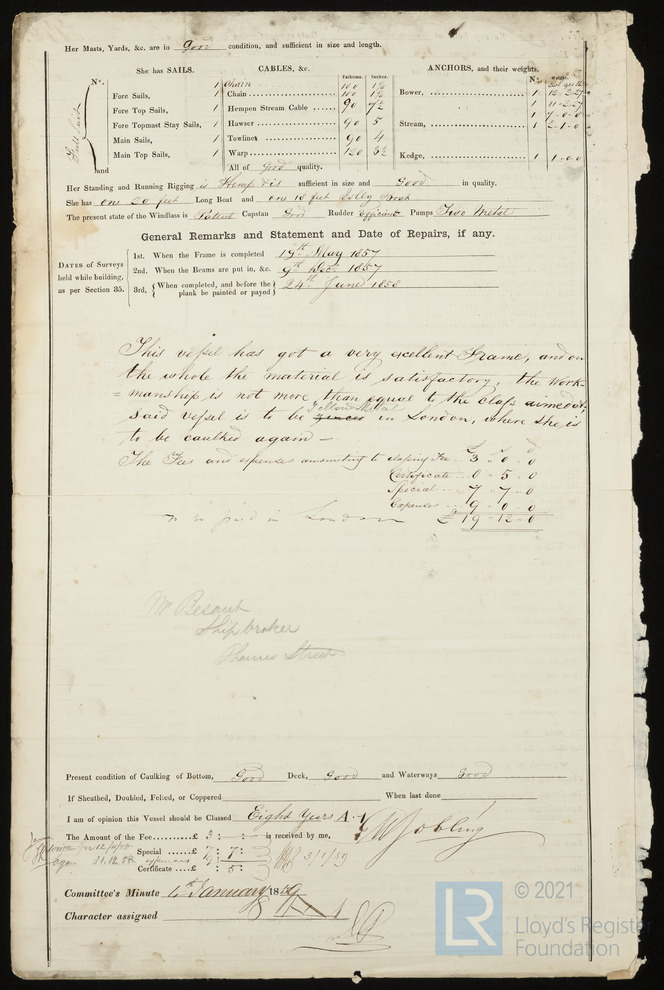 Her Masts, Yards, &c. are in good condition, and sufficient in size and length.
She has SAILS. CABLES, &c. Fathoms. Inches. ANCHORS, and their weights.
No. No.
Chain 100
Fore Sails, 1 Chain 100 Bower, 1
Fore Top Sails, 1 Hempen Stream Cable 90 7½ 1
Fore Topmast Stay Sails, 1 Hawser 90 5 Stream, 1
Main Sails, 1 Towlines 90 4
Main Top Sails, 1 Warp 120 3½ Kedge, 1 1-0-0
and All of Good quality.
Her Standing and Running Rigging is Hemp sufficient in size and Good in quality.
She has one 20 feet Long Boat and one 18 feet Jolly Boat
The present state of the Windlass is Patent Capstan Good Rudder efficient Pumps Two Metal
General Remarks and Statement and Date of Repairs, if any.
DATES of Surveys held while building, as per Section 35.
1st. When the Frame is completed 19th May 1857
2nd. When the Beams are put in, &c. 9th Dec. 1857
3rd. When completed, and before the plank be painted or payed 24th June 1858
This vessel has got a very excellent Frame, and on
the whole the material is satisfactory, the Work-
=manship is not more than equal to the class aimed at;
Yellow Metal
said vessel is to be in London, where she is
to be caulked again –
£ d
The Fees and expenses amounting to classing Fee 3 - 0 - 0
Certificate 0 - 5 - 0
Special 7 - 7 - 0
Expenses 9 - 0 - 0
paid in London £ 19 - 12 - 0
Mr Besant
Ship broker
Thames Street
Present condition of Caulking of Bottom, Good Deck, Good and Waterways Good
If Sheathed, Doubled, Felted, or Coppered When last done
I am of opinion this Vessel should be Classed Eight Years A-1
The Amount of the Fee £ 3 : : is received by me, Jobling
Special £ 7 : 7 : 3/1/59
again 31.12.58 expenses
Certificate £ : 5 :
Committee's Minute 4th January 1859
Character assigned 8 A 1
© 2021
LR Lloyd's Register
Foundation